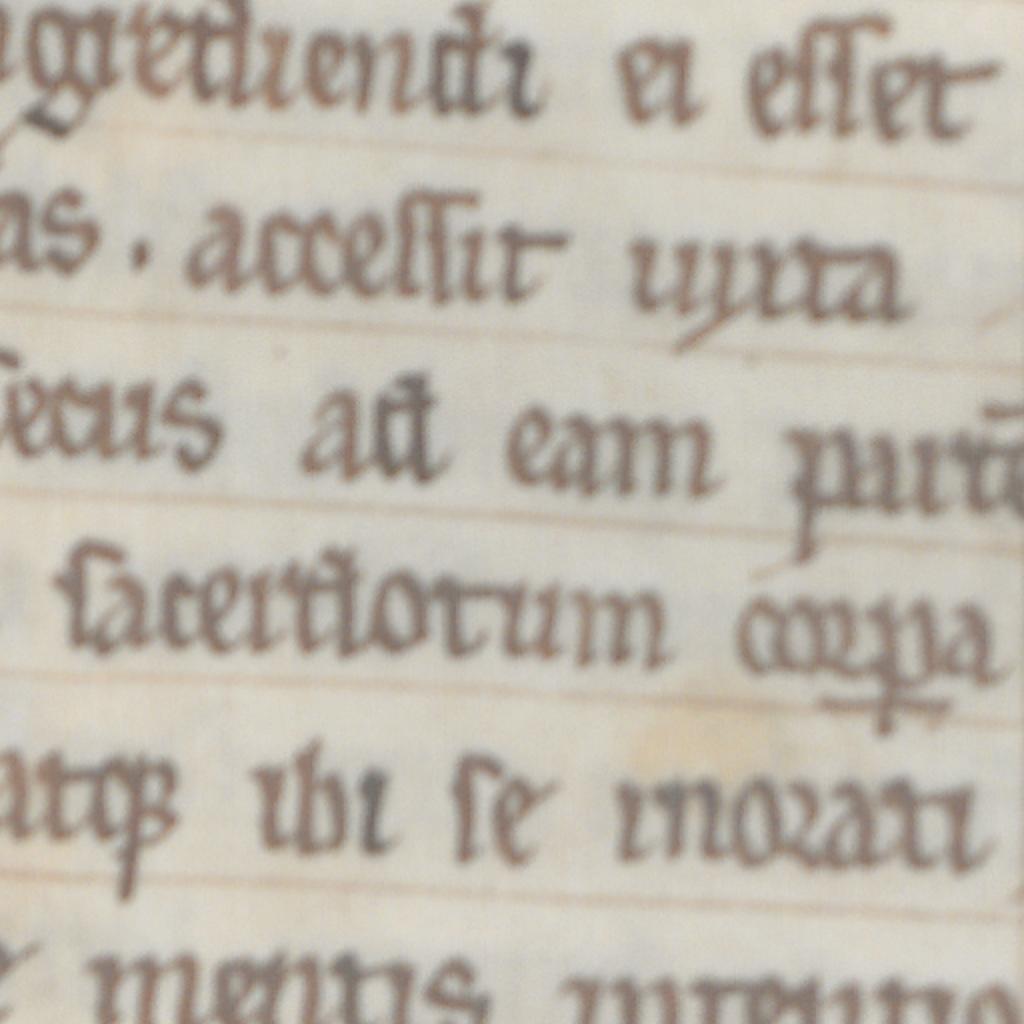 ngrediendi ei esset
as. accessit iuxta
secus ad eam parte
sacerdotum corpa
atq; ibi se morati
mentis intentio